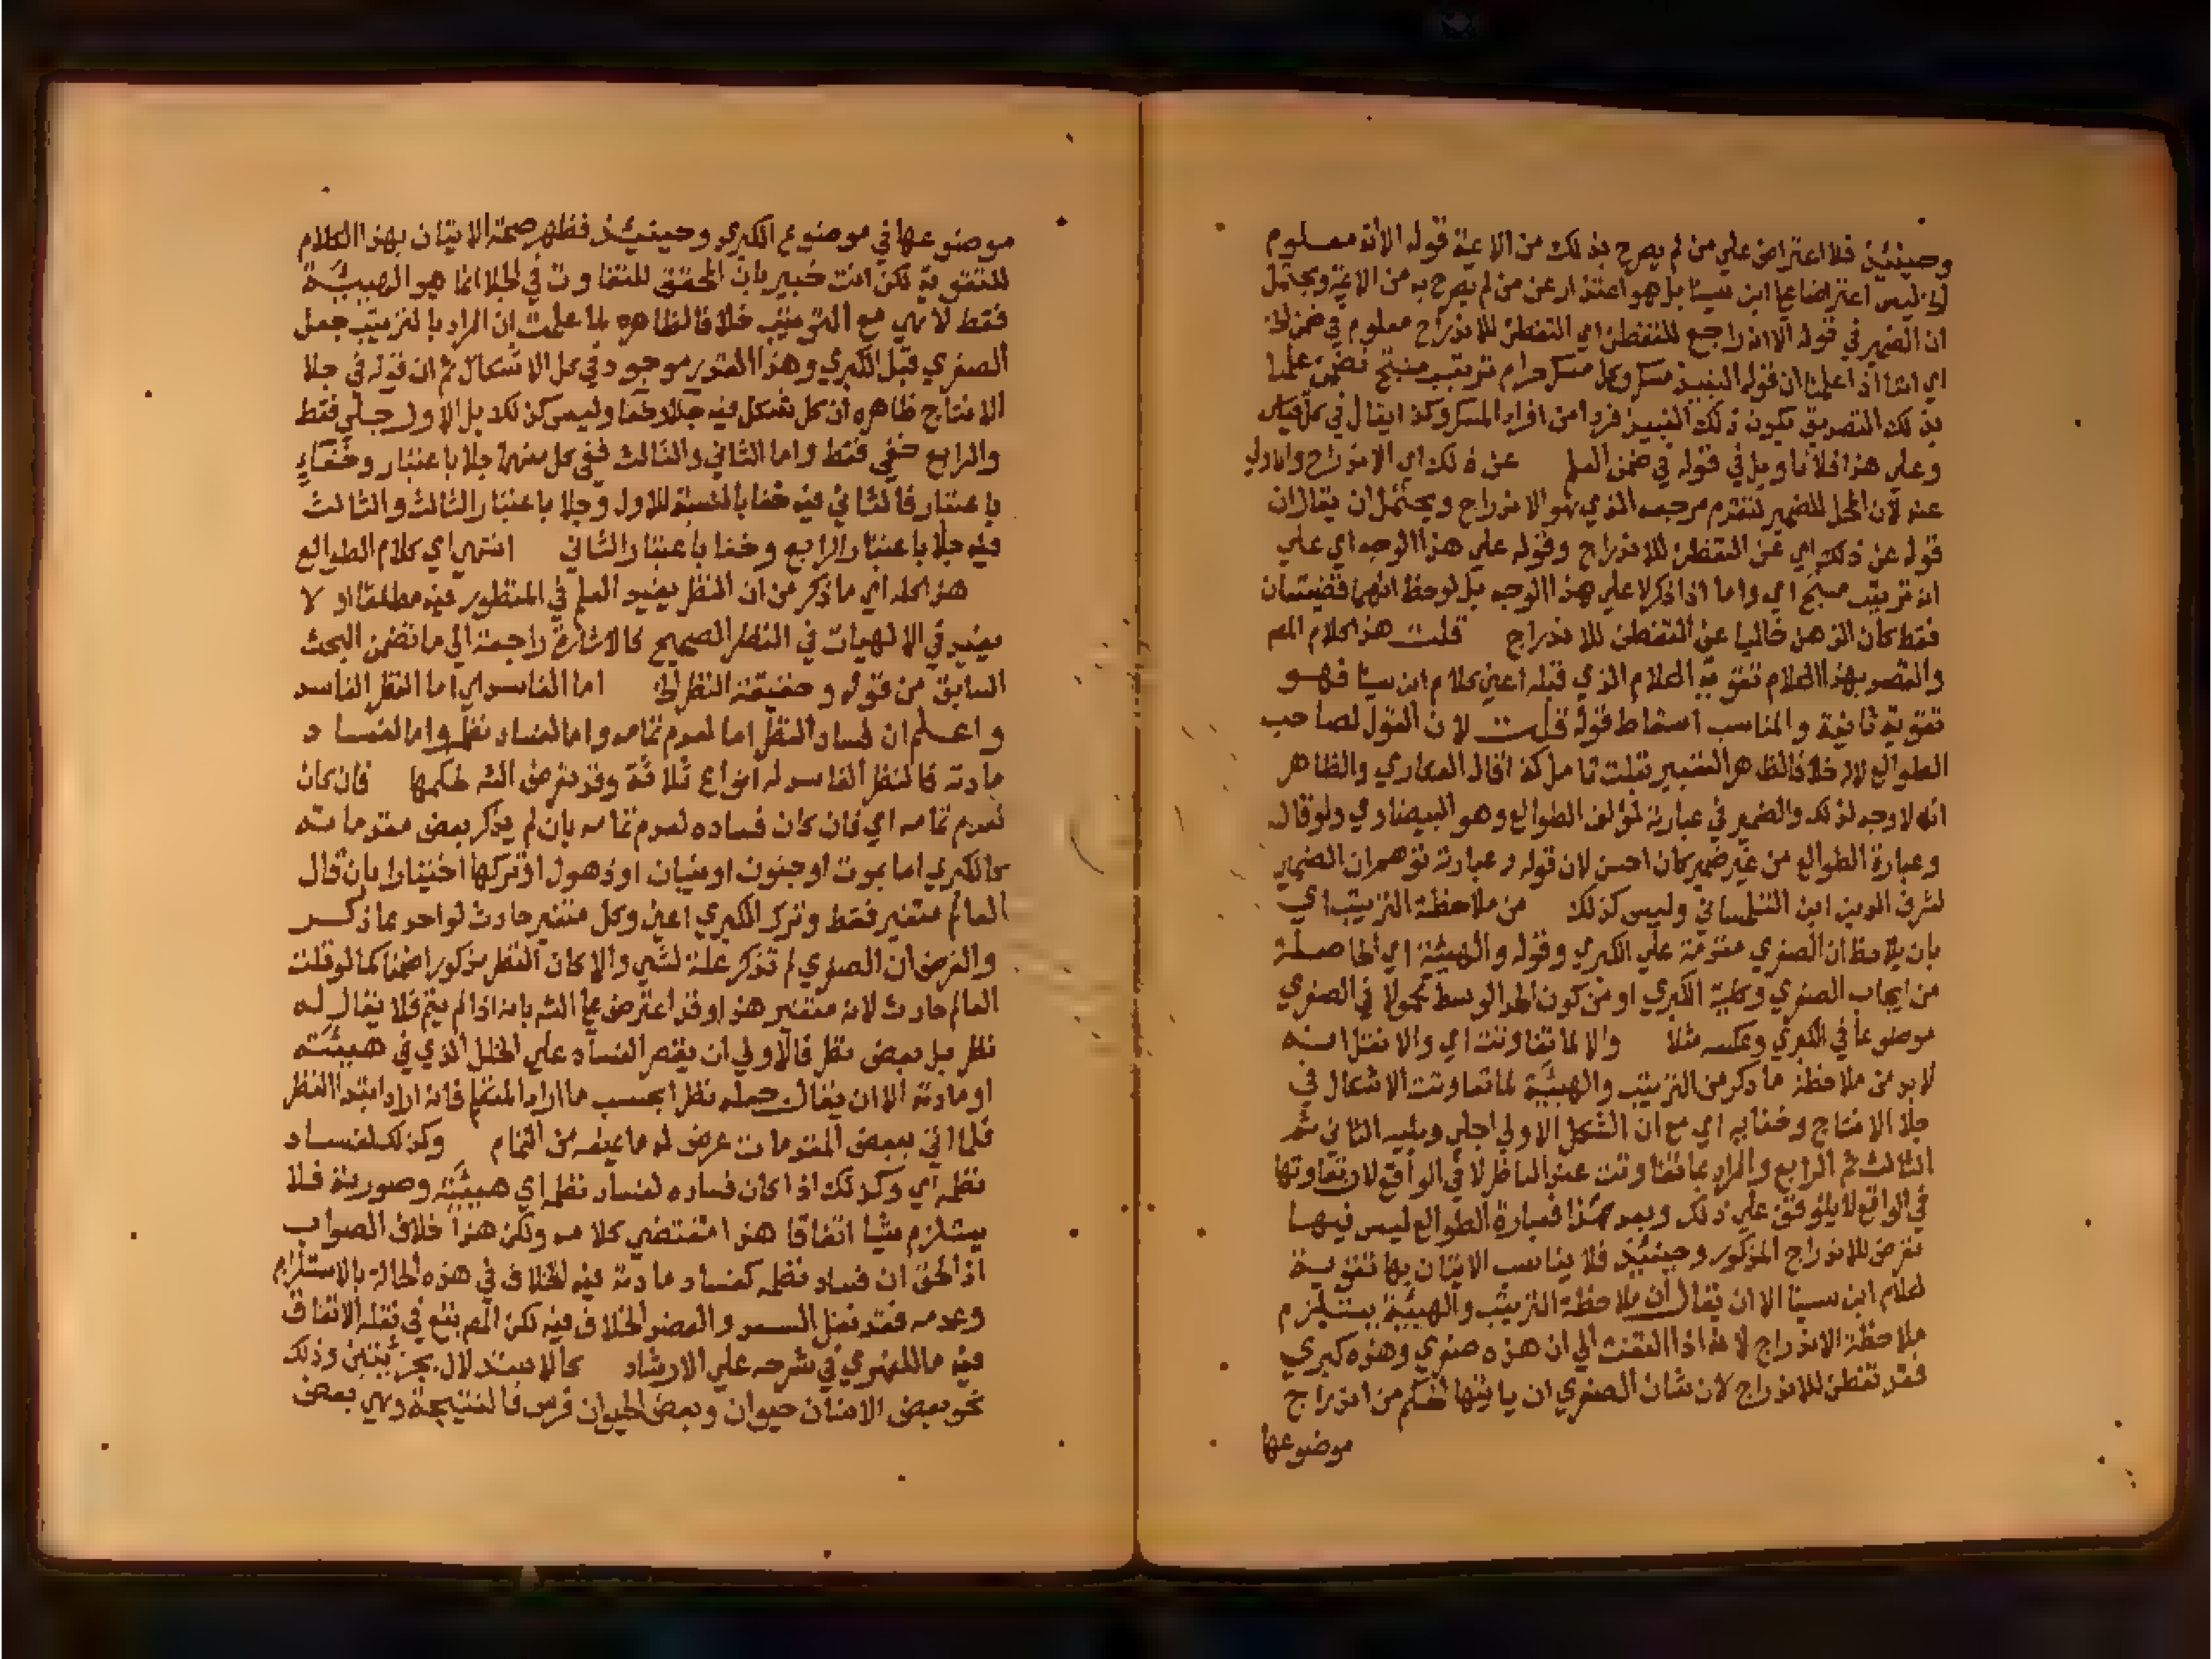 وحينئذ فلا اعتراض علي من لم يصرح بذلك من الايمة قوله الا انه معلوم
الخ ليس اعتراضا علي ابن سينا بل هو اعتذار عن من لم يصرح به من الايمة ويحتمل
ان الضمير في قوله الا انه راجع للتفطن اي التفطن للاندراج معلوم في ضمن الخ
اي اننا اذا علمنا ان قوله النبيذ مسكر وكل مسكر حرام ترتيب منتج تضمن علمنا
بذلك التصديق بكون ذلك النبيذ فردا من افراد المسكر وكذا يقال في كل قياس
وعلي هذا فلا تاويل في قوله في ضمن العلم عن ذلك اي الاندراج
عنه لان المحل للضمير لتقدم مرجعه الذي هو الاندراج ويحتمل ان يقال ان
قوله عن ذلك اي عن التفطن للاندراج وقوله علي هذا الوجه اي علي
انه ترتيب منتج اي واما اذا ذكرلا علي هذا الوجه بل لوحظ انهما قضيتان
فقط كان الذهن خاليا عن التفطن للاندراج قلت هذا كلام المص
والقصد بهذا الكلام تقوية الكلام الذي قبله اعني كلام ابن سينا فهو
تقوية ثانية والمناسب اسقاط قوله قلت لان القول لصاحب
الطوالع لا له خلافا لظاهر التعبير بقلت تامل كذا قال العكاري والظاهر
انه لا وجه لذلك والضمير في عبارته لمؤلف الطوالع وهو البيضاوي ولو قال
وعبارة الطوالع من غير ضمير كان احسن لان قوله وعبارته توهم ان الضمير
لشرف الدين ابن التلمساني وليس كذلك من ملاحظة الترتيب اي
بان يلاحظ ان الصغري مقدمة علي الكبري وقوله والهيئة اي الحاصلة
من ايجاب الصغري وكلية الكبري او من كون الحد الوسط محمولا في الصغري
موضوعا في الكبري وعكسه مثلا والا لما تفاوتت اي والا نقل انه
لا بد من ملاحظة ما ذكر من الترتيب والهيئة لما تفاوتت الاشكال في
جلا الانتاج وخفايه اي مع ان الشكل الاول اجلي ويليه الثاني ثم
الثالث ثم الرابع والمراد بما تفاوتت عند الناظر لا في الواقع لان تفاوتها
في الواقع لا يتوقف علي ذلك وبعد هذا فعبارة الطوالع ليس فيها
تعرض للاندراج المذكور وحينئذ فلا يناسب الاتيان بها تقوية
لكلام ابن سينا الا ان يقال ان ملاحظة الترتيب والهيئة يستلزم
ملاحظة الاندراج لانه اذا التفت الي ان هذه صغري وهذه كبري
فقد تفطن للاندراج لان شان الصغري ان ياتيها الحكم من اندراج
موضوعها
موضوعها في موضوع الكبري وحينئذ فظهر صحة الاتيان بهذا الكلام
للتقوية لكن انت خبير بان المحقق للتفاوت في الجلا انما هو الهيئة
فقط لا هي مع الترتيب خلافا لظاهره لما علمت ان المراد بالترتيب جعل
الصغري قبل الكبري وهذا القدر موجود في كل الاشكال ثم ان قوله في جلا
الانتاج ظاهره ان كل شكل فيه جلا وخفا وليس كذلك بل الاول جلي فقط
والرابع خفي فقط واما الثاني والثالث ففي كل منهما جلا باعتبار وخفاء
باعتبار فالثاني فيه خفا بالنسبة للاول وجلا باعتبار الثالث والثالث
فيه جلا باعتبار الرابع وخفا باعتبار الثاني انتهي اي كلام الطوالع
هذا كله اي ما ذكر من ان النظر يفيد العلم في المنظور فيه مطلقا او لا
يفيد في الالهيات في النظر الصحيح فالاشارة راجعة الي ما تضمن البحث
السابق من قوله وحقيقة النظر الخ اما الفاسد اي اما النظر الفاسد
واعلم ان فساد النظر اما لعدم تمامه واما لفساد نظمه واما لفساد
مادته فالنظر الفاسد له انواع ثلاثة وقد تعرض الش لحكمها فان كان
لعدم تمامه اي فان كان فساده لعدم تمامه بان لم يذكر بعض مقدماته
كالكبري اما بموت او جنون او نسيان او ذهول او تركها اختيارا بان قال
العالم متغير فقط وترك الكبري اعني وكل متغير حادث لواحد مما ذكر
والفرض ان الصغري لم تذكر علة لشي والا كان النظر مذكورا ضمنا كما لو قلت
العالم حادث لانه متغير هذا وقد اعترض علي الش بانه اذا لم يتم فلا يقال له
نظر بل بعض نظر فالاولي ان يقصر الفساد علي الخلل الذي في هيئته
او مادته الا ان يقال جعله نظرا بحسب ما اراد المتكلم فانه اراد ابتدا النظر
فلما اتي ببعض المقدمات عرض له ما عيفه من التمام وكذلك لفساد
نظمه اي وكذلك اذا كان فساده لفساد نظمه اي هيئته وصورته فلا
يستلزم شيا اتفاقا هذا مقتضي كلامه ولكن هذا خلاف الصواب
اذ الحق ان فساد نظمه كفساد مادته فيه الخلاف في هذه الحالة بالاستلزام
وعدمه فقد نقل السعد والعضد الخلاف فيه لكن المص تبع في نقله الاتفاق
فيه ما للفهري في شرحه علي الارشاد كالاستدلال بجزئيتين وذلك
نحو بعض الانسان حيوان وبعض الحيوان فرس فالنتيجة وهي بعض